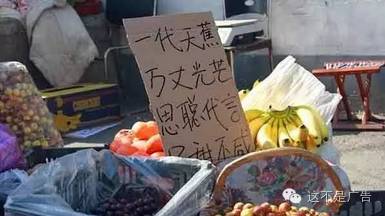 一代天蕉
万丈光芒
思聪代言
甜不
这不是广告